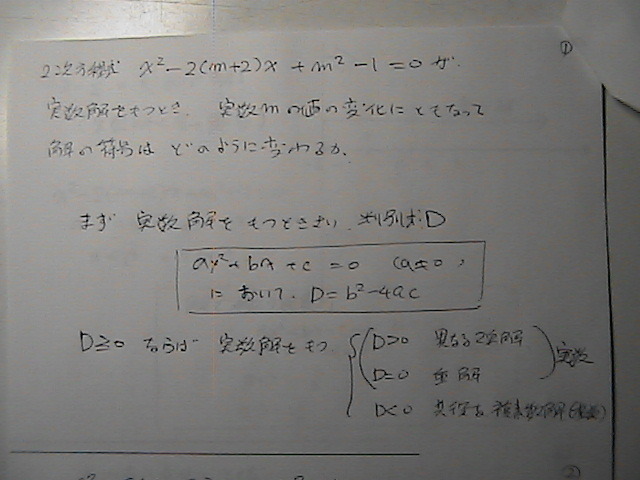 ①
2次方程式 x²-2(m+2)x+m²-1=0 が
実数解をもつとき、実数mの値の変化にともなって
解の符号はどのように変わるか.
まず 実数解をもつときさい. 判別式D
ax²+bx+c=0 (a≠0)
において. D=b²-4ac
D≧0 ならば 実数解をもつ
D>0 異なる2実解
D=0 重解
実数
D<0 共役な複素数解
②